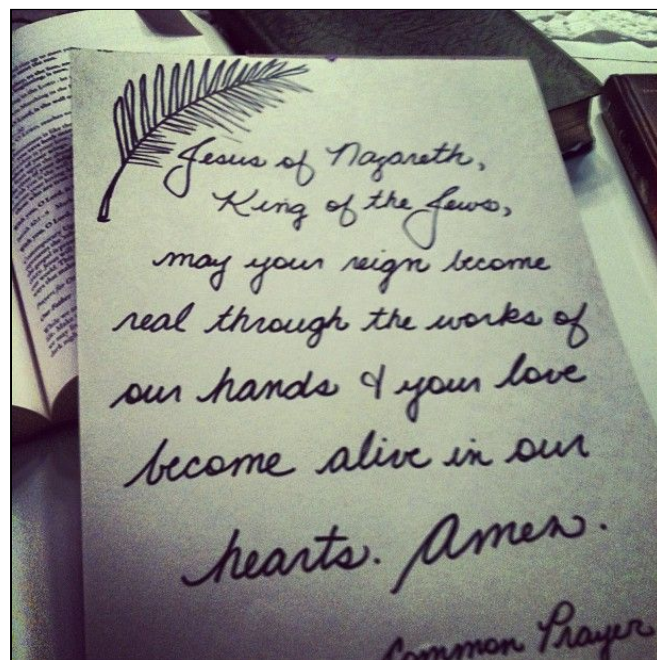 Jesus of Nazareth,
King of the Jews,
may your reign become
real through the works of
our hands & your love
become alive in our
hearts. Amen.
Common Prayer